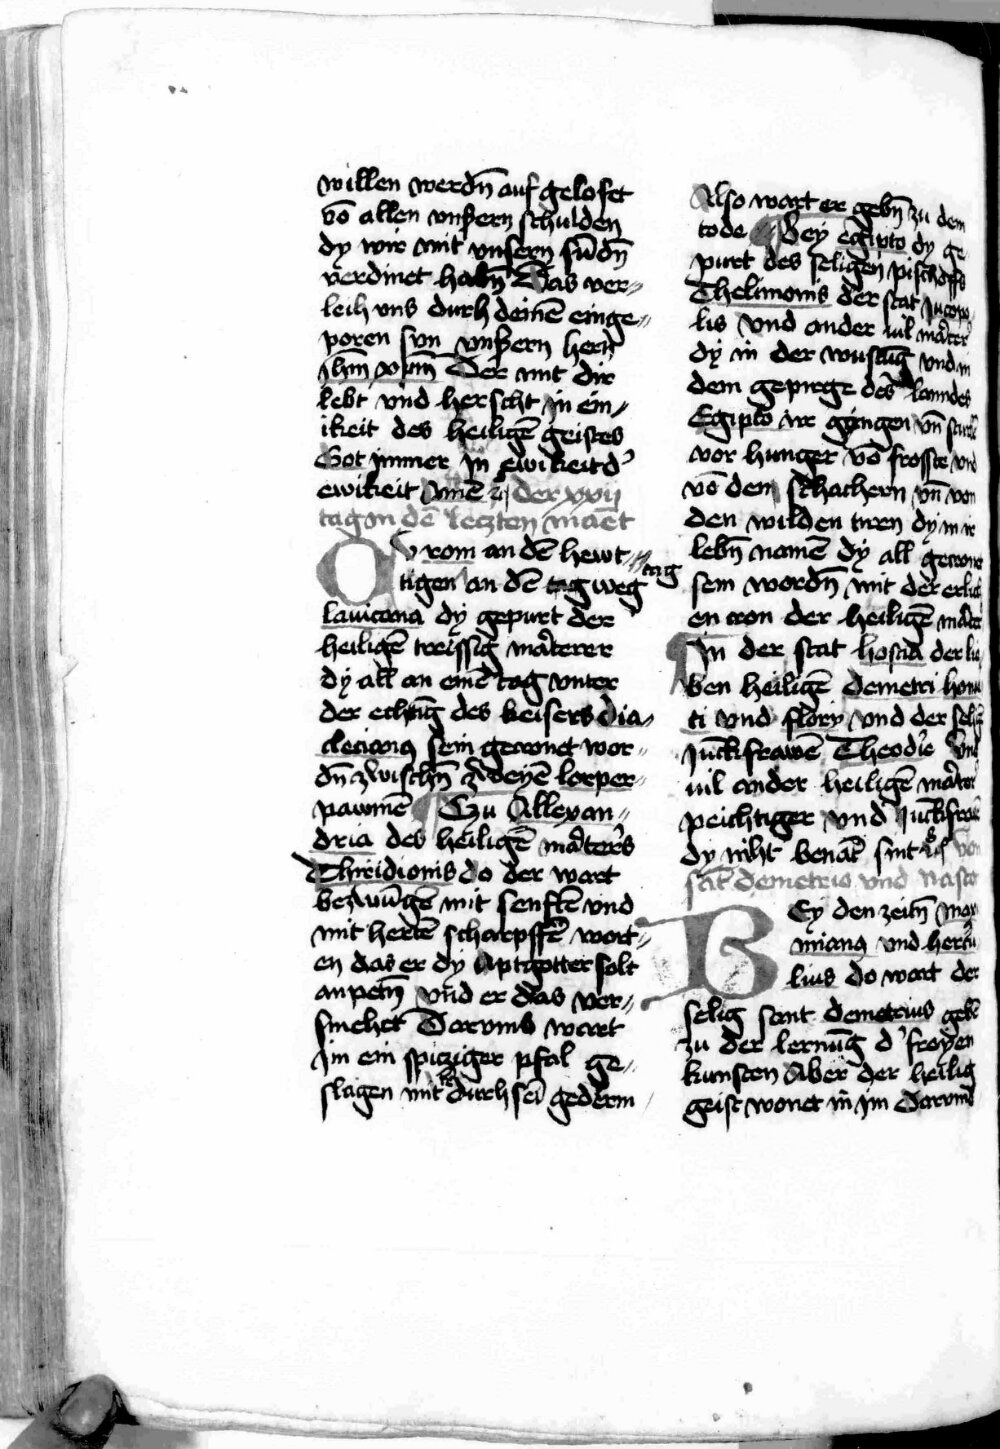 willen werdn̄ auf geloset
vō allen vnßern schulden
dy wir mit vnsern sūdn̄
verdinet habn̄ Das ver⸗
leih vns durh deinē einge⸗
poren svn vnßern hern̄
Jhm̄ xp̄m Der mit dir
lebt vnd herscht in ein⸗
ikeit des heiligē geistes
Got jmmer jn ewikeit d'
ewikeit Amē der xxvij
tag In dē leczten maēt
Av rom an dē hewt⸗
tigen an dē tag weg tag
lauicana dy gepurt der
heiligē treissig mārterer
dy all an einē tag vnter
der echtūg des keisers dia⸗
cleciang sein gecronet wor⸗
dn̄ zwischn̄ zweyē lorper⸗
pawmē Zu Allexan⸗
dria des heiligē mārters
Thiridionis do der wart
bezwūgē mit senftē vnd
mit hertē scharpffē wort⸗
en das er dy Aptgötter solt
anpetn̄ vn̄d er das ver⸗
smehet Darvmb wart
Jm ein spicziger pfal ge⸗
slagen mitte durh sei gederm
Also wart er gebn̄ zu dem
tode Bey egipto dy ge⸗
purt des seligen pischoffs
Thelimonis der stat
lis vnd ander vil mārter
dy in der wustūg vnd in
dem gepirge des lanndes
Egipto irr gingen vn̄
vor hunger vō froste vnd
vō dem schachern vn̄ von
den wilden tiren dy in ir
lebn̄ namē dy all gecronet
sein wordn̄ mit der erlich
en cron der heiligē mārter
In der stat hostia der lie⸗
ben heiligē demetri hono
ti vnd flory vnd der selig
Jūckfrawē Theodie vnd
vil ander heiligē mārter
peichtiger vnd Jūckfraw
dy niht benāt sint von
sāt demetrio vnd nasto
Bey den zeitn̄ max
miang vnd hercu
lius do wart der
selig sant demetrius gebē
zu der lernūg d' freyen
kunsten Aber der heilig
geist wonet in jm Darvmb